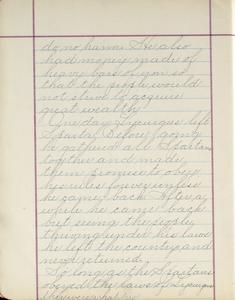 do no harm. He also
had money made of
heavy bars of iron so
that the people would
not strive to acquire
great wealth.
One day Lycurgus left
Sparta. Before going
he gathered all Spartans
together and made
them promise to obey
his rules forever unless
he came back. After a
while he came back
but seeing the people
thriving under his laws
he left the country and
never returned.
So long as the Spartans
obeyed the laws of Lycurgus
they were